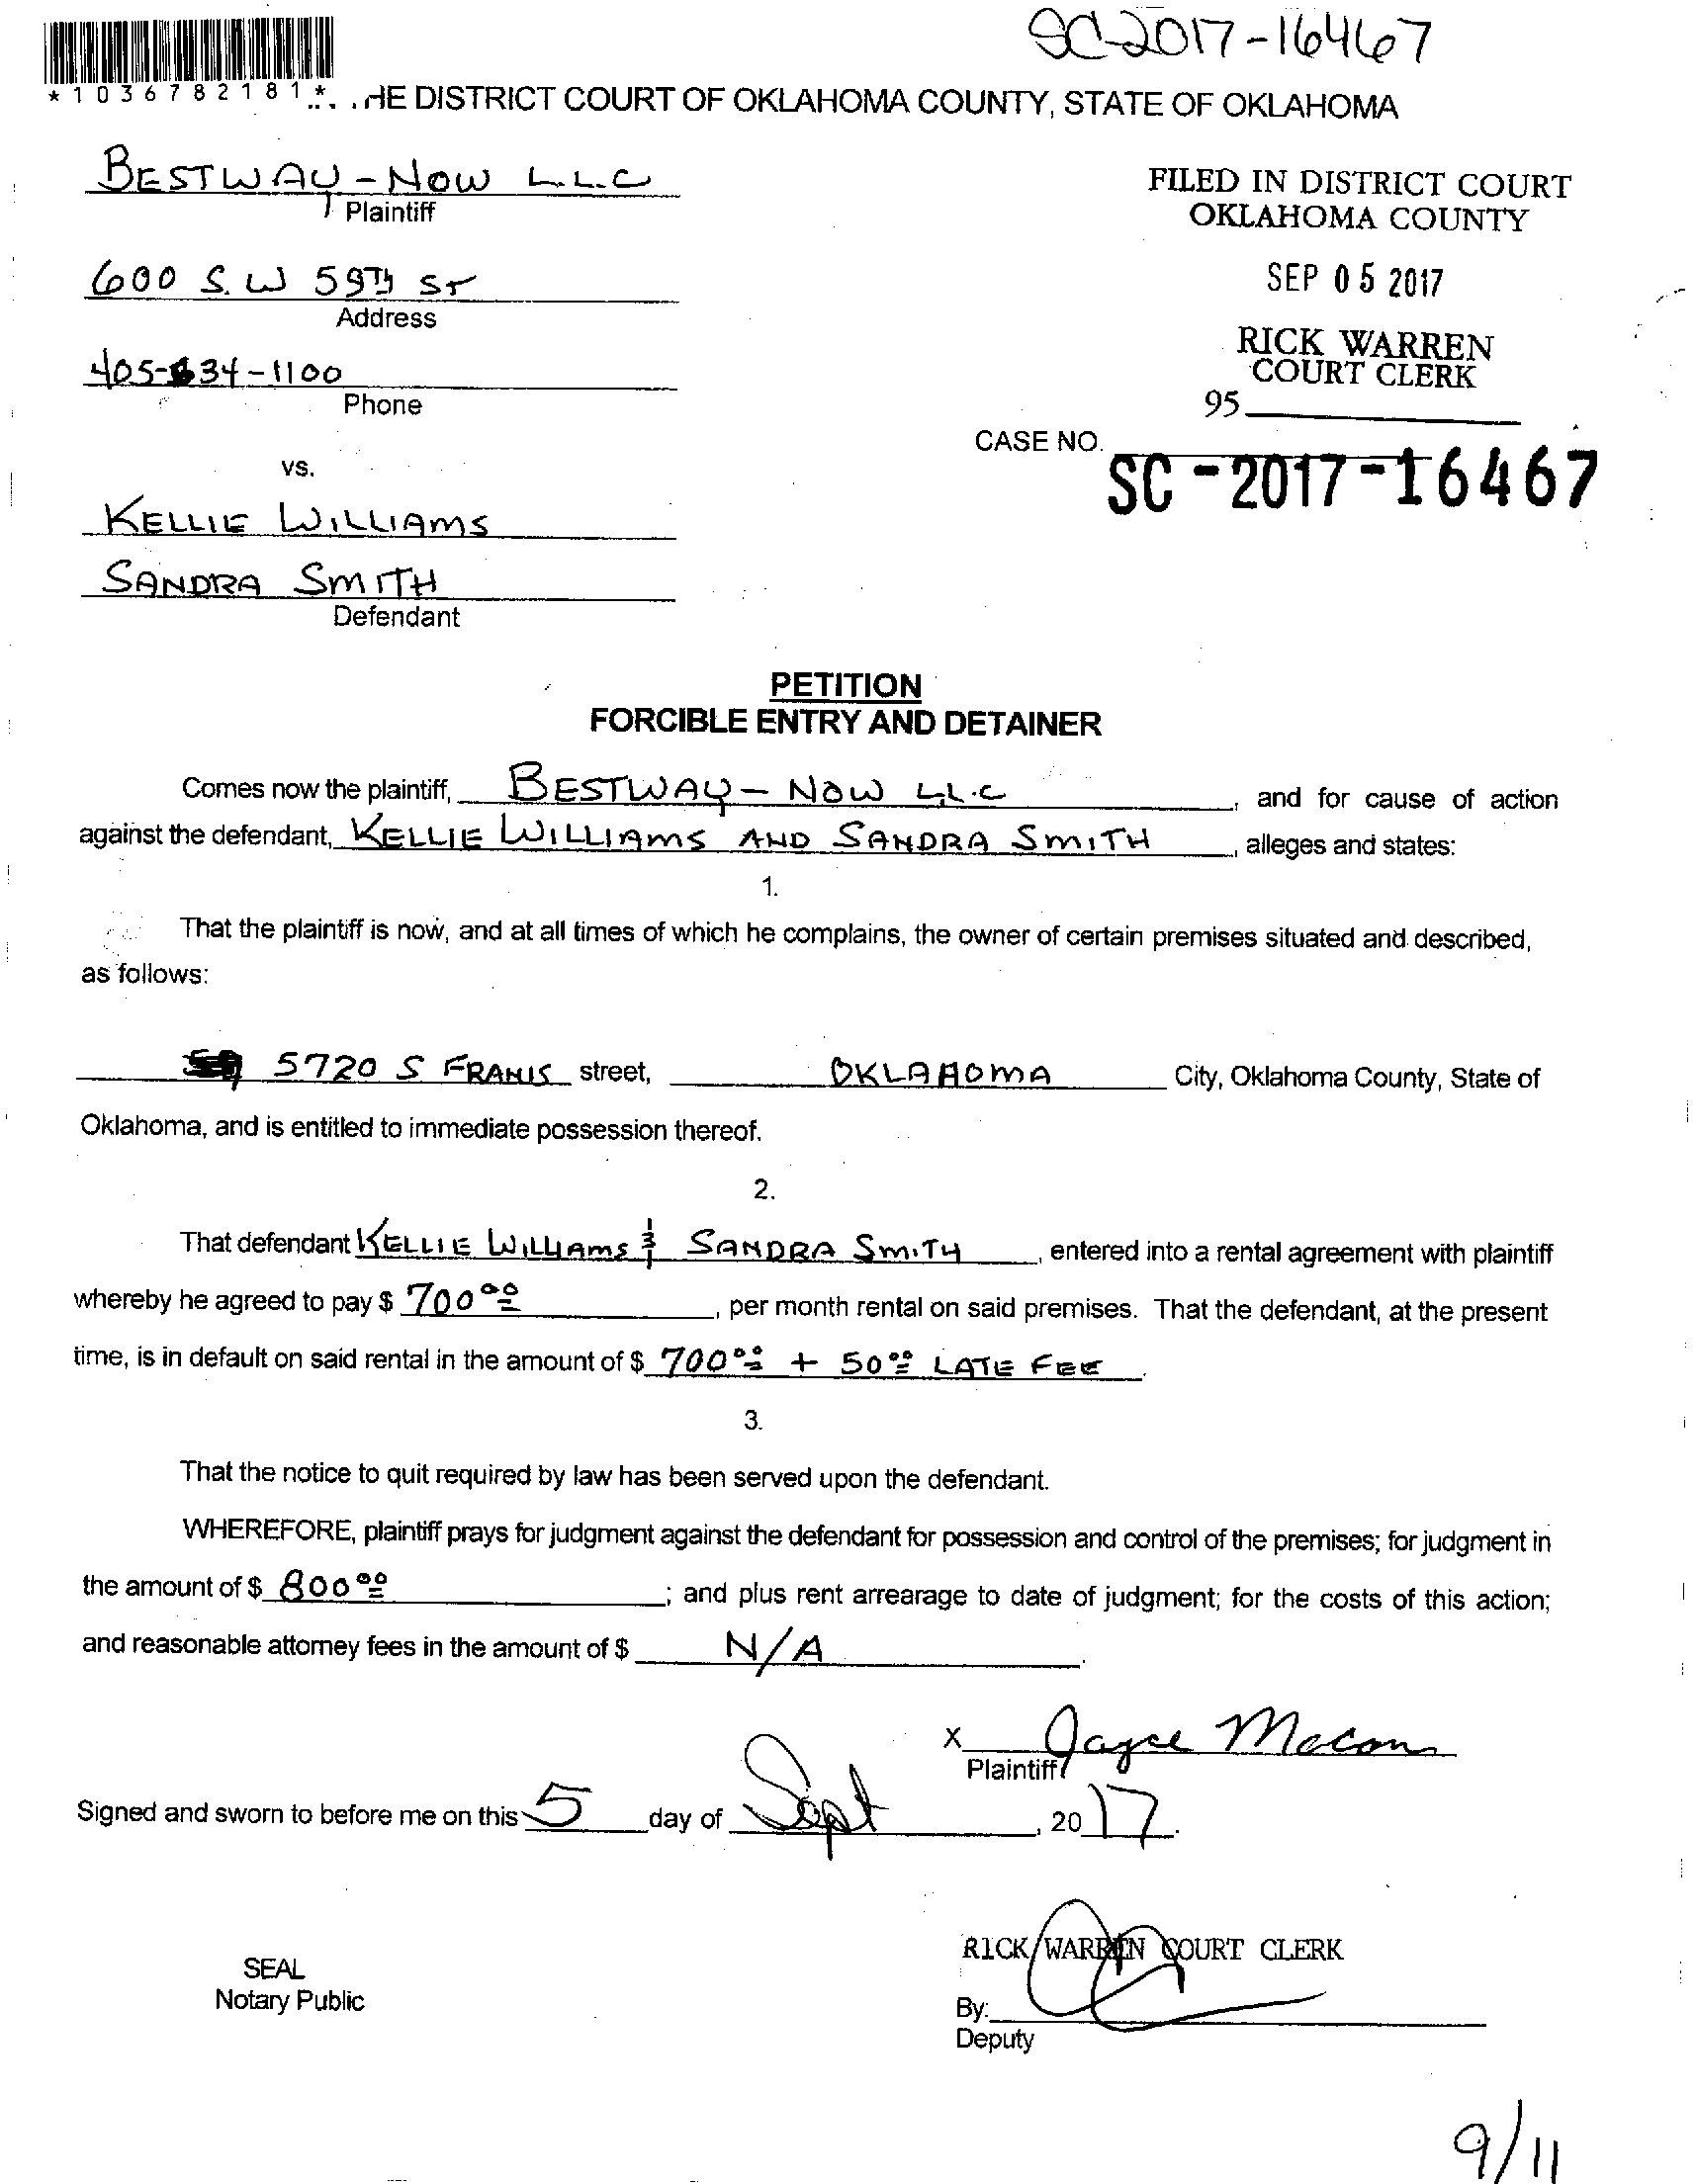 SC-2017-16467
*1036782181*
HE DISTRICT COURT OF OKLAHOMA COUNTY, STATE OF OKLAHOMA
BESTWAY-NOW L.L.C
Plaintiff
FILED IN DISTRICT COURT
OKLAHOMA COUNTY
600 S.W 59TH ST
Address
SEP 05 2017
RICK WARREN
COURT CLERK
405-634-1100
Phone
95
CASE NO.
SC-2017-16467
vs.
KELLIE WILLIAMS
SANDRA SMITH
Defendant
PETITION
FORCIBLE ENTRY AND DETAINER
Comes now the plaintiff, BESTWAY-NOW L.L.C, and for cause of action
against the defendant, KELLIE WILLIAMS AND SANDRA SMITH, alleges and states:
1.
That the plaintiff is now, and at all times of which he complains, the owner of certain premises situated and described,
as follows:
5720 S FRANIS street, OKLAHOMA City, Oklahoma County, State of
Oklahoma, and is entitled to immediate possession thereof.
2.
That defendant KELLIE WILLIAMS & SANDRA SMITH, entered into a rental agreement with plaintiff
whereby he agreed to pay $ 700 00, per month rental on said premises. That the defendant, at the present
time, is in default on said rental in the amount of $ 700 00 + 50 00 LATE FEE.
3.
That the notice to quit required by law has been served upon the defendant.
WHEREFORE, plaintiff prays for judgment against the defendant for possession and control of the premises; for judgment in
the amount of $ 800 00; and plus rent arrearage to date of judgment; for the costs of this action;
and reasonable attorney fees in the amount of $ N/A.
X Jayce Macon
Plaintiff
Signed and sworn to before me on this 5 day of Sept, 2017.
RICK WARREN COURT CLERK
SEAL
Notary Public
By:
Deputy
9/11